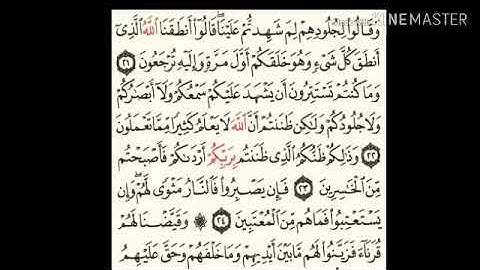 KINEMASTER
وَقَالُوا۟ لِجُلُودِهِمْ لِمَ شَهِدتُّمْ عَلَيْنَا ۖ قَالُوٓا۟ أَنطَقَنَا ٱللَّهُ ٱلَّذِىٓ
أَنطَقَ كُلَّ شَىْءٍ وَهُوَ خَلَقَكُمْ أَوَّلَ مَرَّةٍ وَإِلَيْهِ تُرْجَعُونَ ٢١
وَمَا كُنتُمْ تَسْتَتِرُونَ أَن يَشْهَدَ عَلَيْكُمْ سَمْعُكُمْ وَلَآ أَبْصَٰرُكُمْ
وَلَا جُلُودُكُمْ وَلَٰكِن ظَنَنتُمْ أَنَّ ٱللَّهَ لَا يَعْلَمُ كَثِيرًا مِّمَّا تَعْمَلُونَ
٢٢ وَذَٰلِكُمْ ظَنُّكُمُ ٱلَّذِى ظَنَنتُم بِرَبِّكُمْ أَرْدَىٰكُمْ فَأَصْبَحْتُم
مِّنَ ٱلْخَٰسِرِينَ ٢٣ فَإِن يَصْبِرُوا۟ فَٱلنَّارُ مَثْوًى لَّهُمْ ۖ وَإِن
يَسْتَعْتِبُوا۟ فَمَا هُم مِّنَ ٱلْمُعْتَبِينَ ٢٤ ۞ وَقَيَّضْنَا لَهُمْ
قُرَنَآءَ فَزَيَّنُوا۟ لَهُم مَّا بَيْنَ أَيْدِيهِمْ وَمَا خَلْفَهُمْ وَحَقَّ عَلَيْهِمُ